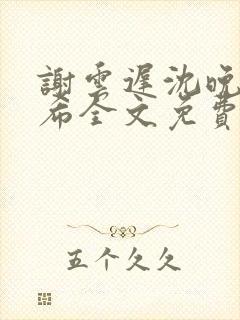 謝雲遲沈晚
希全文免費
五个久久